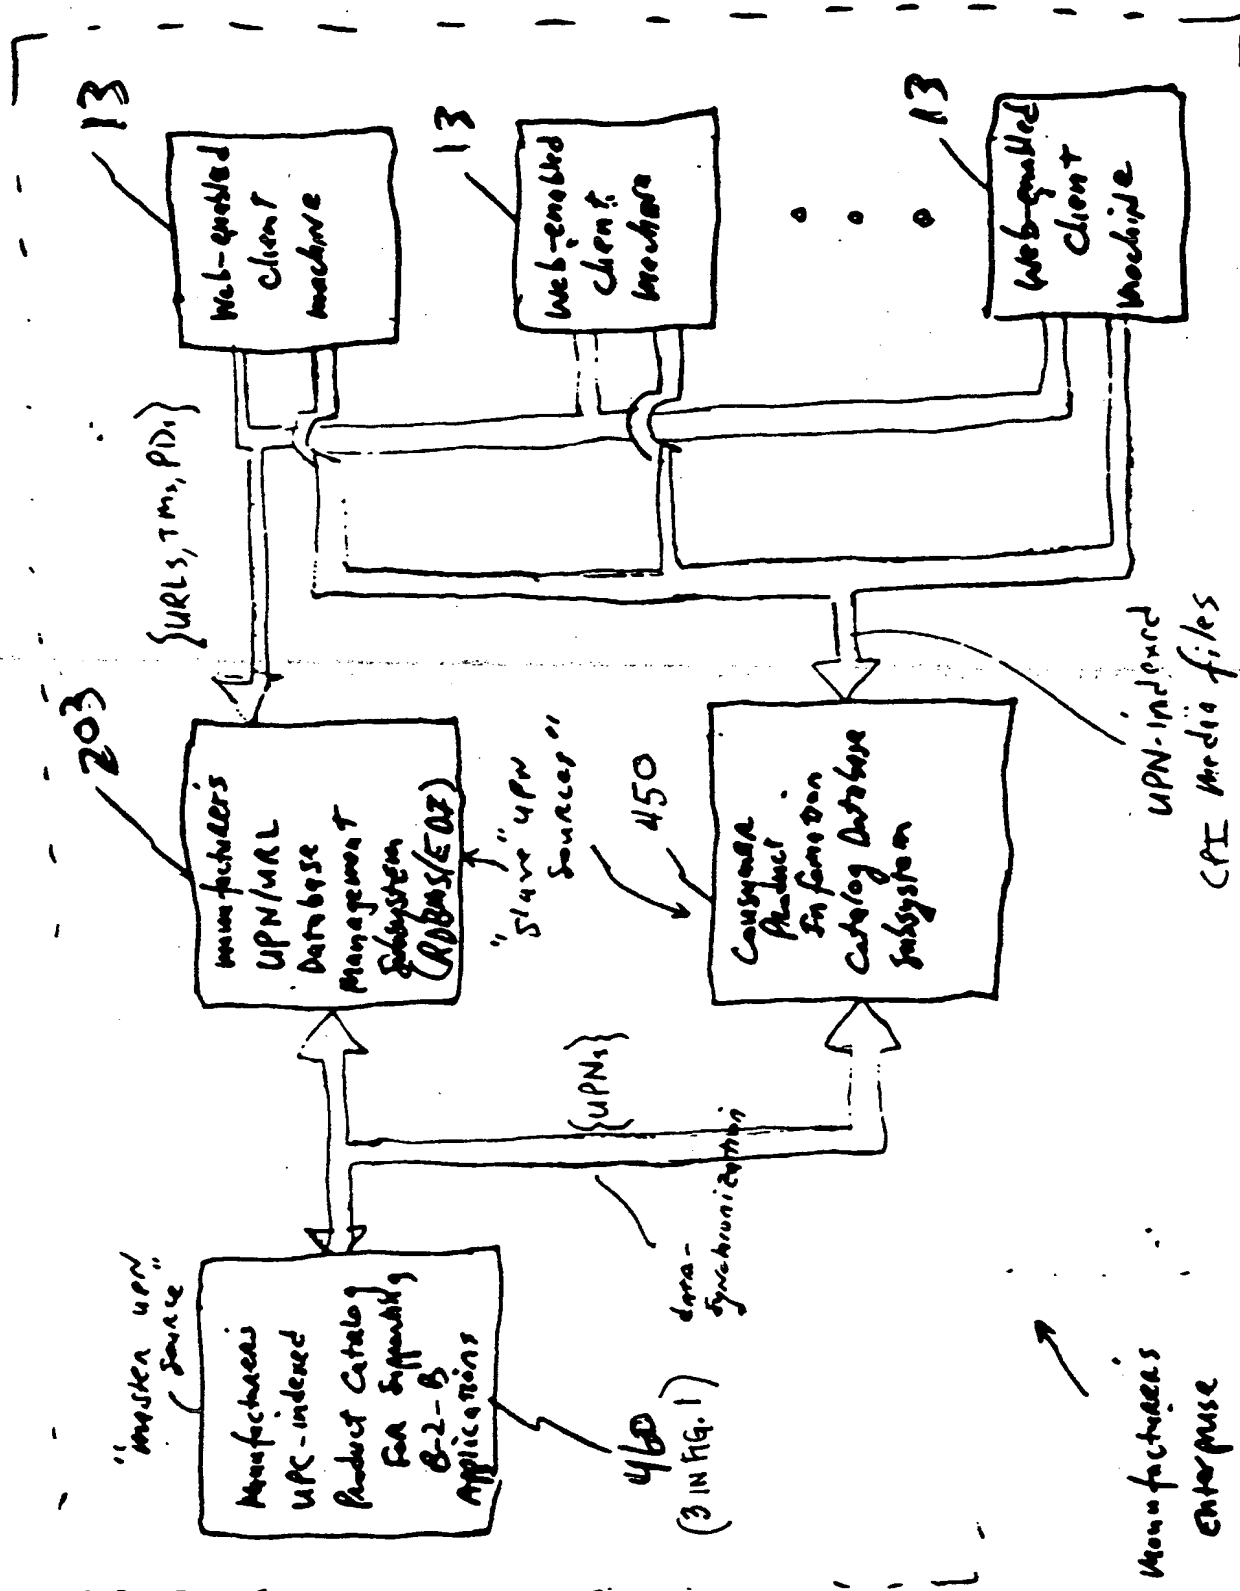 "master UPN
source"
Manufacturers
UPC-indexed
Product Catalog
For Supporting
B-2-B
Applications
460
(3 IN FIG. 1)
data-
synchronization
{UPNs}
203
manufacturer's
UPN/URL
Database
Management
Subsystem
(RDBMS/EDI)
"Slave" UPN
Sources"
450
Consumer
Product
Information
Catalog Database
Subsystem
{URLs, TMs, PDs}
13
Web-enabled
Client
machine
13
Web-enabled
Client
machine
13
Web-enabled
Client
machine
UPN-indexed
CPI media files
Manufacturers
Enterprise